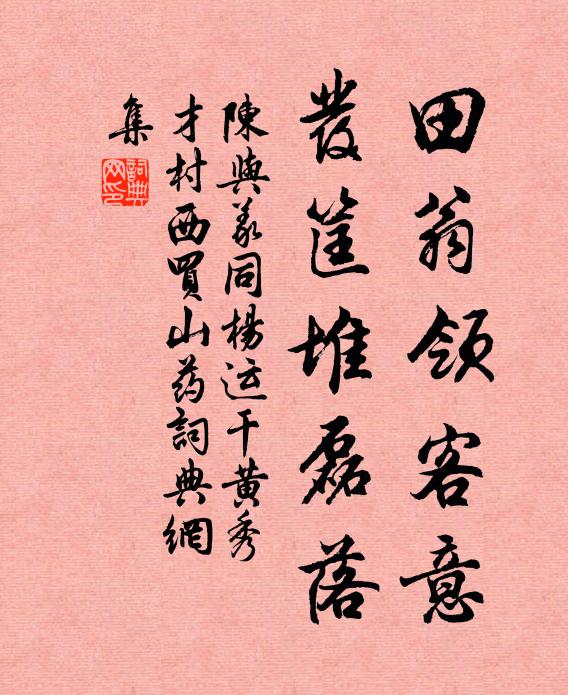 田翁領客意
發筐堆磊落
陳與義同楊运干黃秀
才村西買山药詞典網
集
詞典
网印